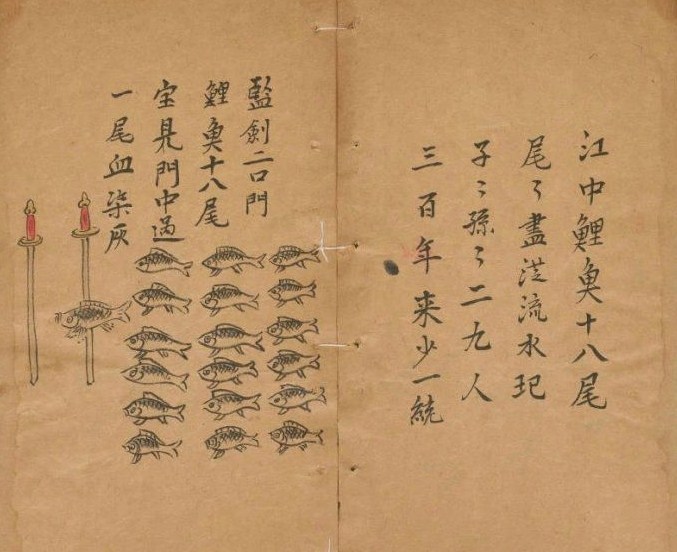 江中鯉魚十八尾
尾々盡從流水玘
子々孫々二九人
三百年来少一統
藍劍二口門
鯉魚十八尾
宝見門中過
一尾血染灰